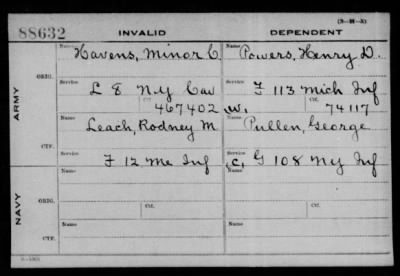 (3-88-A)
88632 INVALID DEPENDENT
Name Havens, Minor C. Name Powers, Henry D.
ARMY
ORIG. Service L 8 N.Y. Cav Service F 113 Mich Inf
Ctf. 467402 W. Ctf. 74117
CTF. Name Leach, Rodney M Name Pullen, George
Service F 12 Me Inf Service C. G 108 N.Y. Inf
NAVY
Name Name
ORIG. Ctf. Ctf.
CTF. Name Name